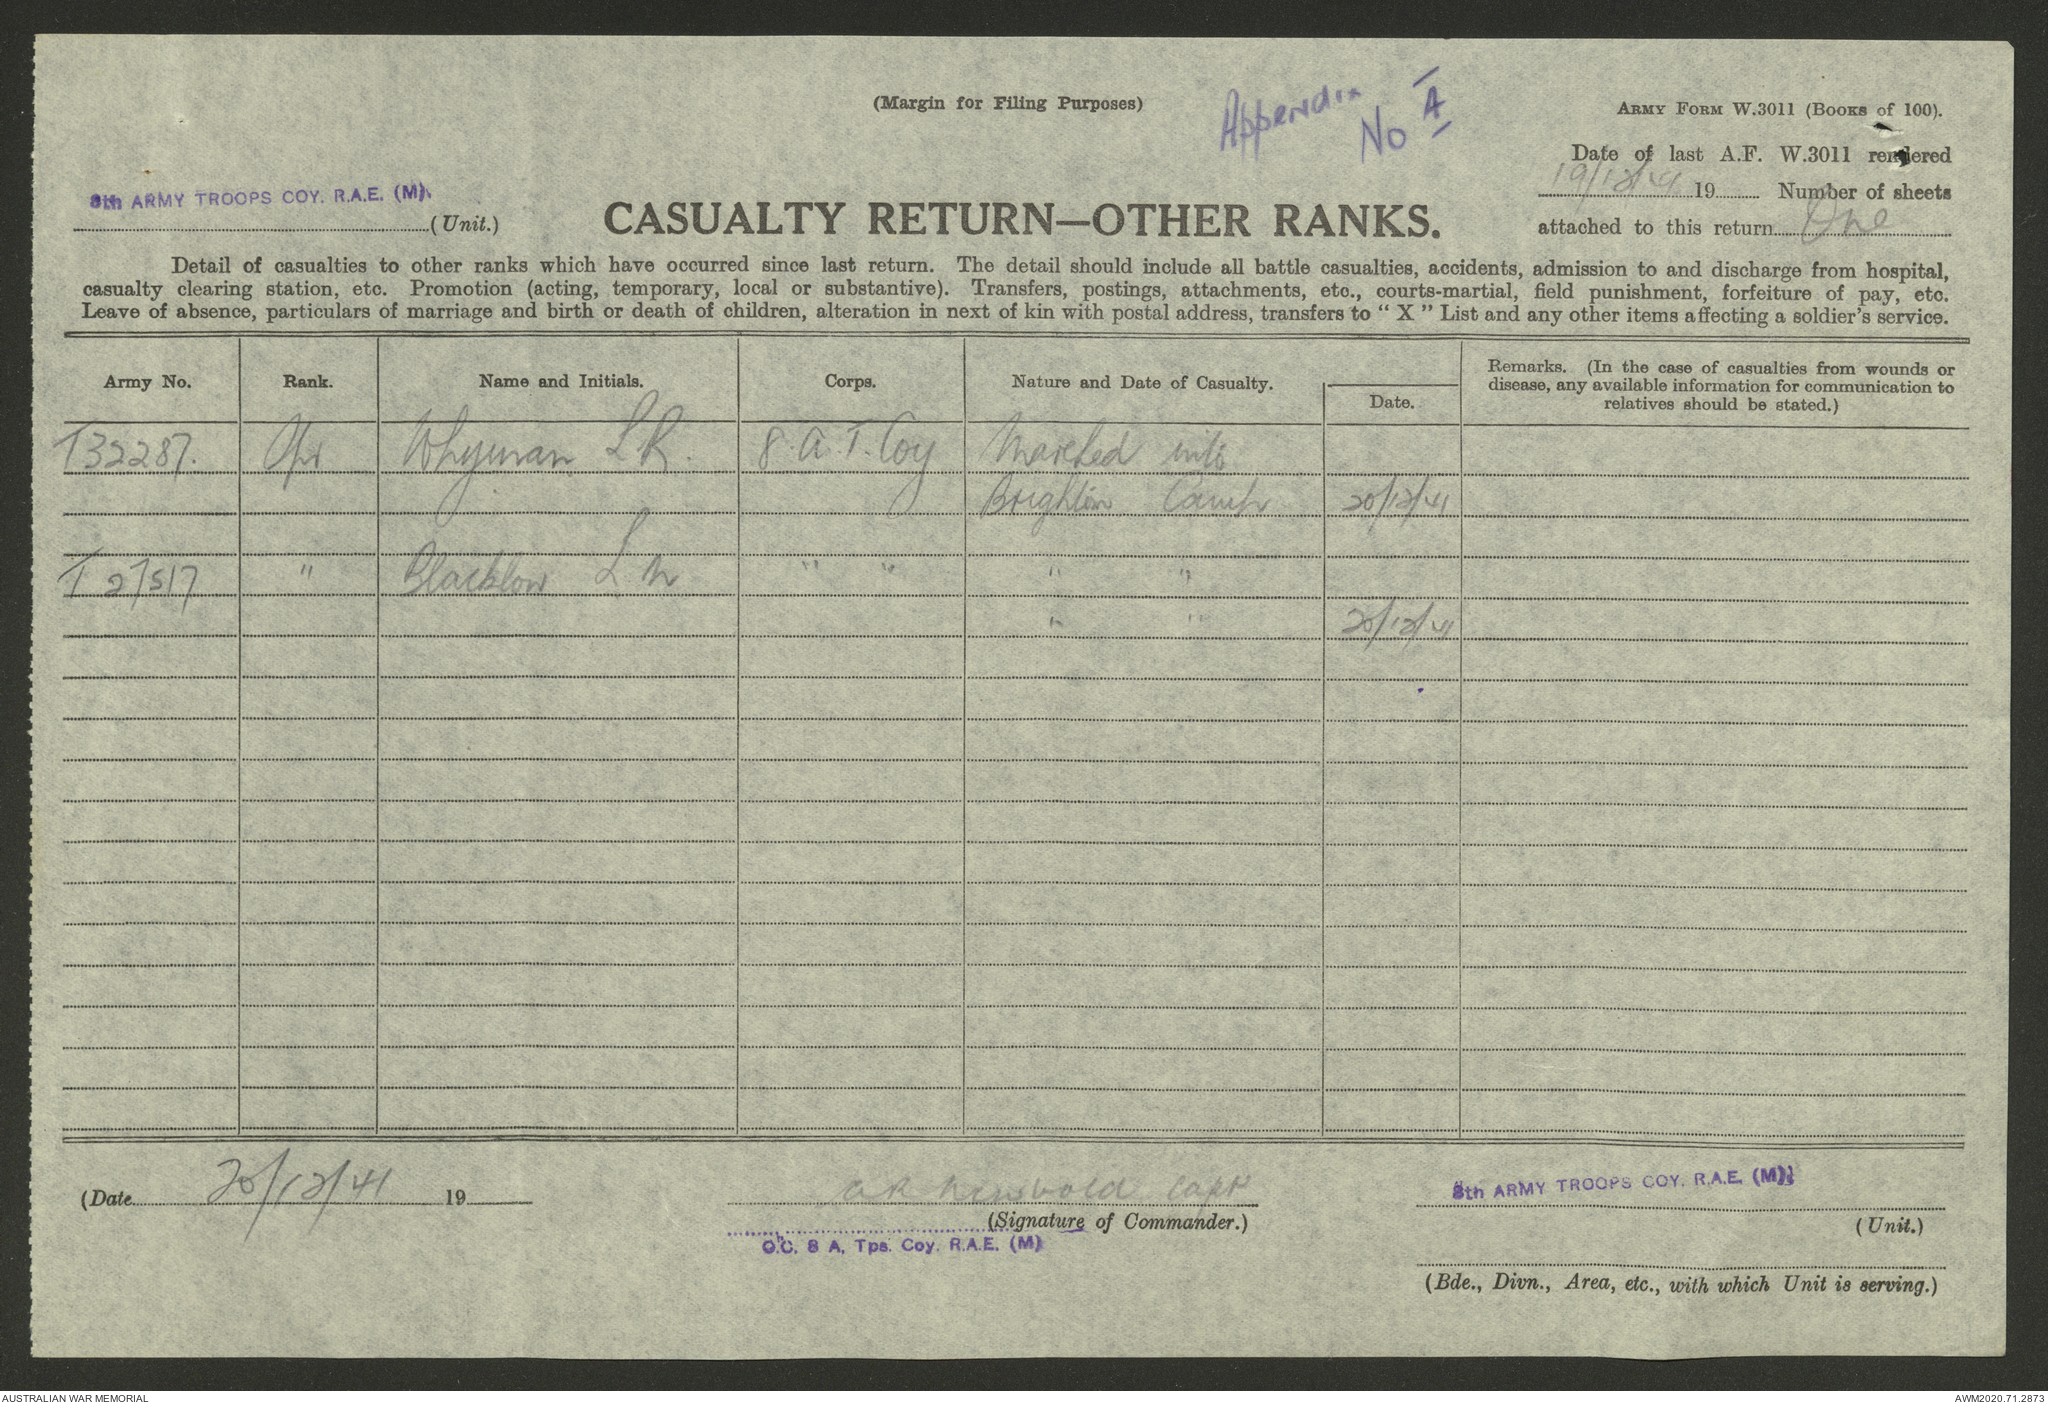 (Margin for Filing Purposes)
Appendix
No A
ARMY FORM W.3011 (BOOKS of 100).
Date of last A.F. W.3011 rendered
19/12/41 19 Number of sheets
attached to this return One
8th ARMY TROOPS COY. R.A.E. (M).
(Unit.)
CASUALTY RETURN—OTHER RANKS.
Detail of casualties to other ranks which have occurred since last return. The detail should include all battle casualties, accidents, admission to and discharge from hospital,
casualty clearing station, etc. Promotion (acting, temporary, local or substantive). Transfers, postings, attachments, etc., courts-martial, field punishment, forfeiture of pay, etc.
Leave of absence, particulars of marriage and birth or death of children, alteration in next of kin with postal address, transfers to " X " List and any other items affecting a soldier's service.
Army No. Rank. Name and Initials. Corps. Nature and Date of Casualty. Date.
Remarks. (In the case of casualties from wounds or
disease, any available information for communication to
relatives should be stated.)
T32287. Spr Whyman L R. 8 A.T. Coy Marched into
Brighton Camp 20/12/41
T 27517 " Blacklow L M " " " "
" " 20/12/41
(Date 20/12/41 19
Capt
(Signature of Commander.)
O.C. 8 A. Tps. Coy. R.A.E. (M)
8th ARMY TROOPS COY. R.A.E. (M)
(Unit.)
(Bde., Divn., Area, etc., with which Unit is serving.)
AUSTRALIAN WAR MEMORIAL
AWM2020.71.2873